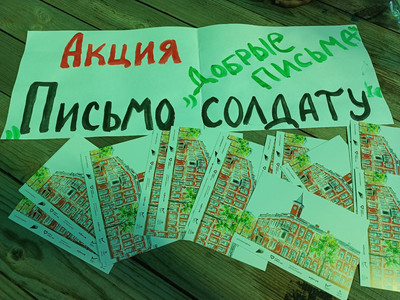 Акция
„Добрые
Письма"
„Письмо солдату"